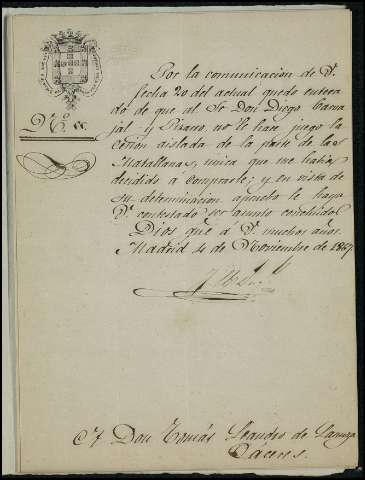 Por la comunicacion de V.
fecha 20 del actual quedo entera
do de que al Sr Don Diego Carva
jal y Pizarro no le hace juego la
cerion aislada de la parte de las
Matallanas, unica que me habia
decidido á comprarle; y en vista de
su determinacion apruebo le haya
V. contestado ser asunto concluido.
Dios gue á V. muchos años.
Madrid 4 de Noviembre de 1867.
Nº
Dn Don Tomás Leandro de
Cáceres.